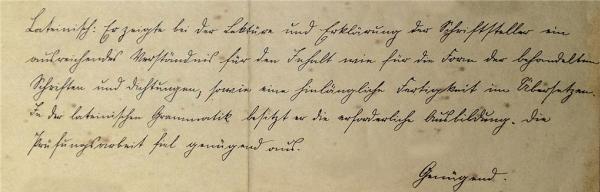 Lateinisch: Er zeigte bei der Lektüre und Erklärung der Schriftsteller ein
ausreichendes Verständnis für den Inhalt wie für die Form der behandelten
Schriften und Dichtungen, sowie eine hinlängliche Fertigkeit im Übersetzen.
In der lateinischen Grammatik besitzt er die erforderliche Ausbildung. Die
Prüfungsarbeit fiel genügend aus.
Genügend.